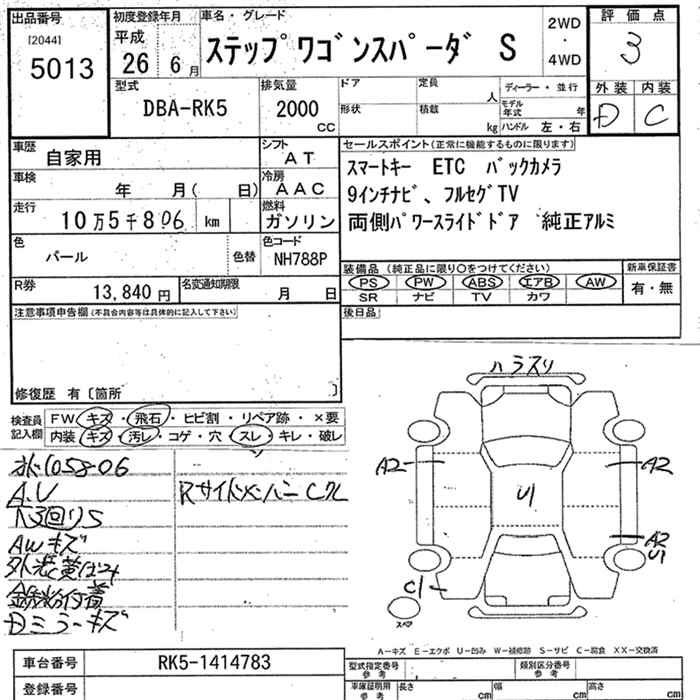 出品番号
[2044]
5013
初度登録年月
平成
26 6月
車名・グレード
ステップワゴンスパーダ S
2WD
・
4WD
評価点
3
外装 内装
D C
型式
DBA-RK5
排気量
2000
cc
ドア 定員
人
形状 積載
kg
ディーラー・並行
モデル年式 年
ハンドル 左・右
車歴
自家用
シフト
AT
車検
年 月( 日)
冷房
AAC
走行
10万5千806 km
燃料
ガソリン
色
パール
色替
色コード
NH788P
R券
13,840円
名変通知期限
月 日
セールスポイント(正常に機能するものに限ります)
スマートキー ETC バックカメラ
9インチナビ、フルセグTV
両側パワースライドドア 純正アルミ
装備品(純正品に限り○をつけてください)
新車保証書
PS PW ABS エアB AW
SR ナビ TV カワ
有・無
後日品
注意事項申告欄(不具合内容等は具体的に記入して下さい)
修復歴 有〔箇所 〕
検査員
記入欄
FW キズ・飛石・ヒビ割・リペア跡・×要
内装 キズ・汚レ・コゲ・穴・スレ・キレ・破レ
105806
A.U
下回りS
AWキズ
外装黄ばみ
鉄粉付着
Dミラーキズ
RサイドメンバーCクレ
ハラスリ
A2
A2
U1
A2
U1
C1
スペア
A-キズ E-エクボ U-凹み W-補修跡 S-サビ C-腐食 XX-交換済
車台番号
RK5-1414783
登録番号
型式指定番号
参考
類別区分番号
参考
車庫証明用
参考
長さ cm 幅 cm 高さ cm